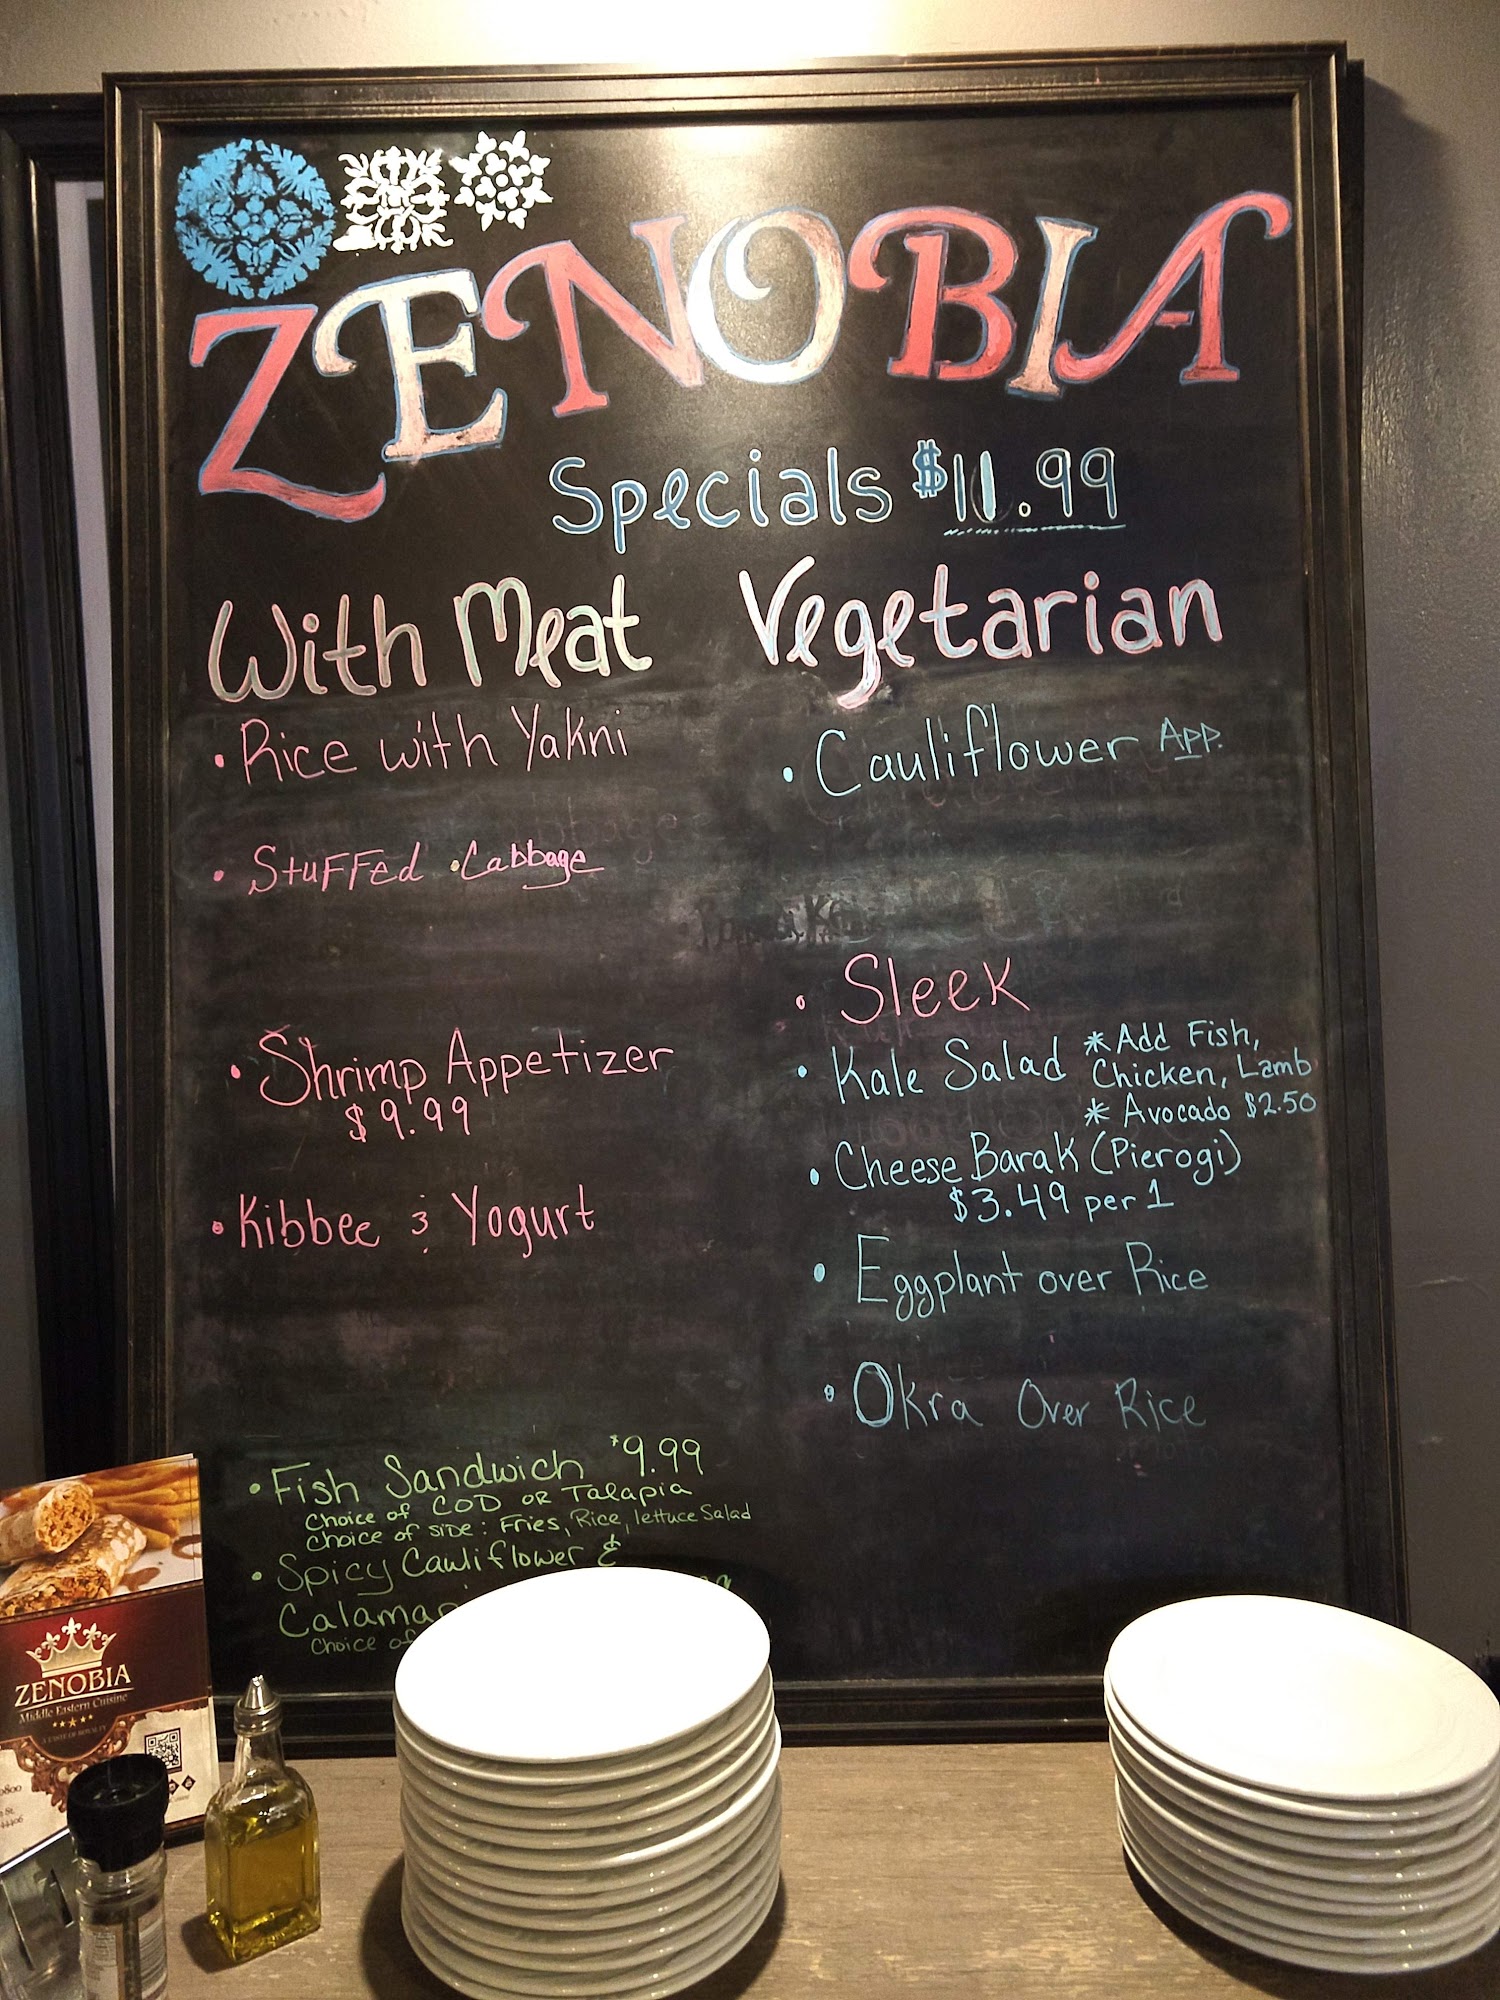 ZENOBIA
Specials $11.99
With Meat
• Rice with Yakni
• Stuffed • Cabbage
• Shrimp Appetizer
$9.99
• Kibbee & Yogurt
• Fish Sandwich $9.99
Choice of COD OR Talapia
Choice of side: Fries, Rice, lettuce Salad
• Spicy Cauliflower &
Choice of
Vegetarian
• Cauliflower App.
• Sleek
• Kale Salad * Add Fish,
Chicken, Lamb
* Avocado $2.50
• Cheese Barak (Pierogi)
$3.49 per 1
• Eggplant over Rice
• Okra Over Rice
ZENOBIA
Middle Eastern Cuisine
A TASTE OF ROYALTY